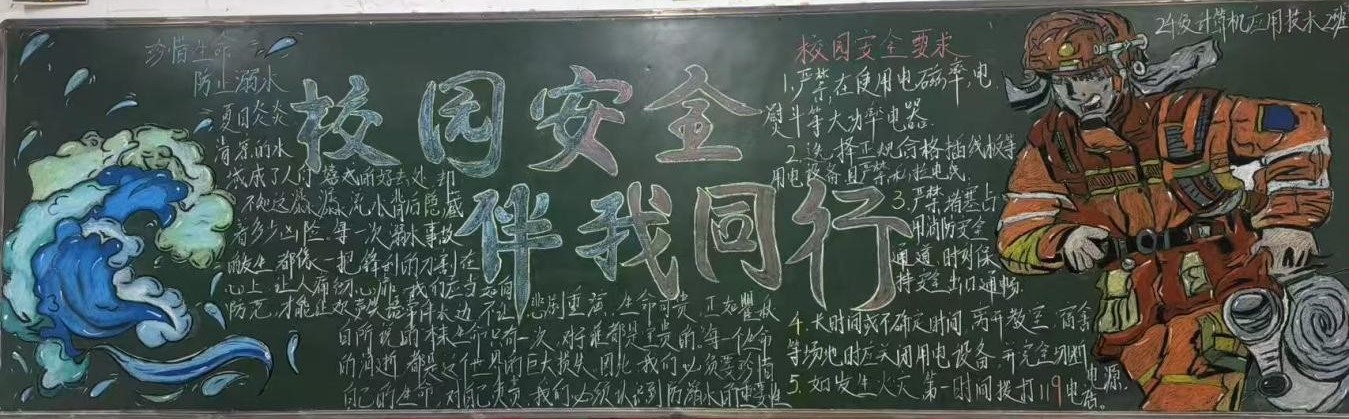 珍惜生命
防止溺水
夏日炎炎
清凉的水
域成了人们嬉戏的好去处,却
不知这潺潺流水背后隐藏
着多少凶险。每一次溺水事故
的发生都像一把锋利的刀割在
心上,让人痛彻心扉,我们应当如何
防范,才能让欢声
水边不让悲剧重演,生命可贵,正如瞿秋
白所说的本来生命只有一次,对于谁都是宝贵的,每一个生命
的消逝都是这个世界的巨大损失,因此我们必须要珍惜
自己的生命,对自己负责,我们必须认识到防溺水的重要性
校园安全
伴我同行
校园安全要求
1.严禁在使用电磁率,电
熨斗等大功率电器.
2.选择正规合格插线板等
用电设备且严禁乱拉电线.
3.严禁堵塞占
用消防安全
通道,时刻保
持安全出口通畅.
4.长时间或不确定时间,离开教室、宿舍
等场地时应关闭用电设备,并完全切断电源.
5.如发生火灾,第一时间拨打119电话。
24级计算机应用技术2班